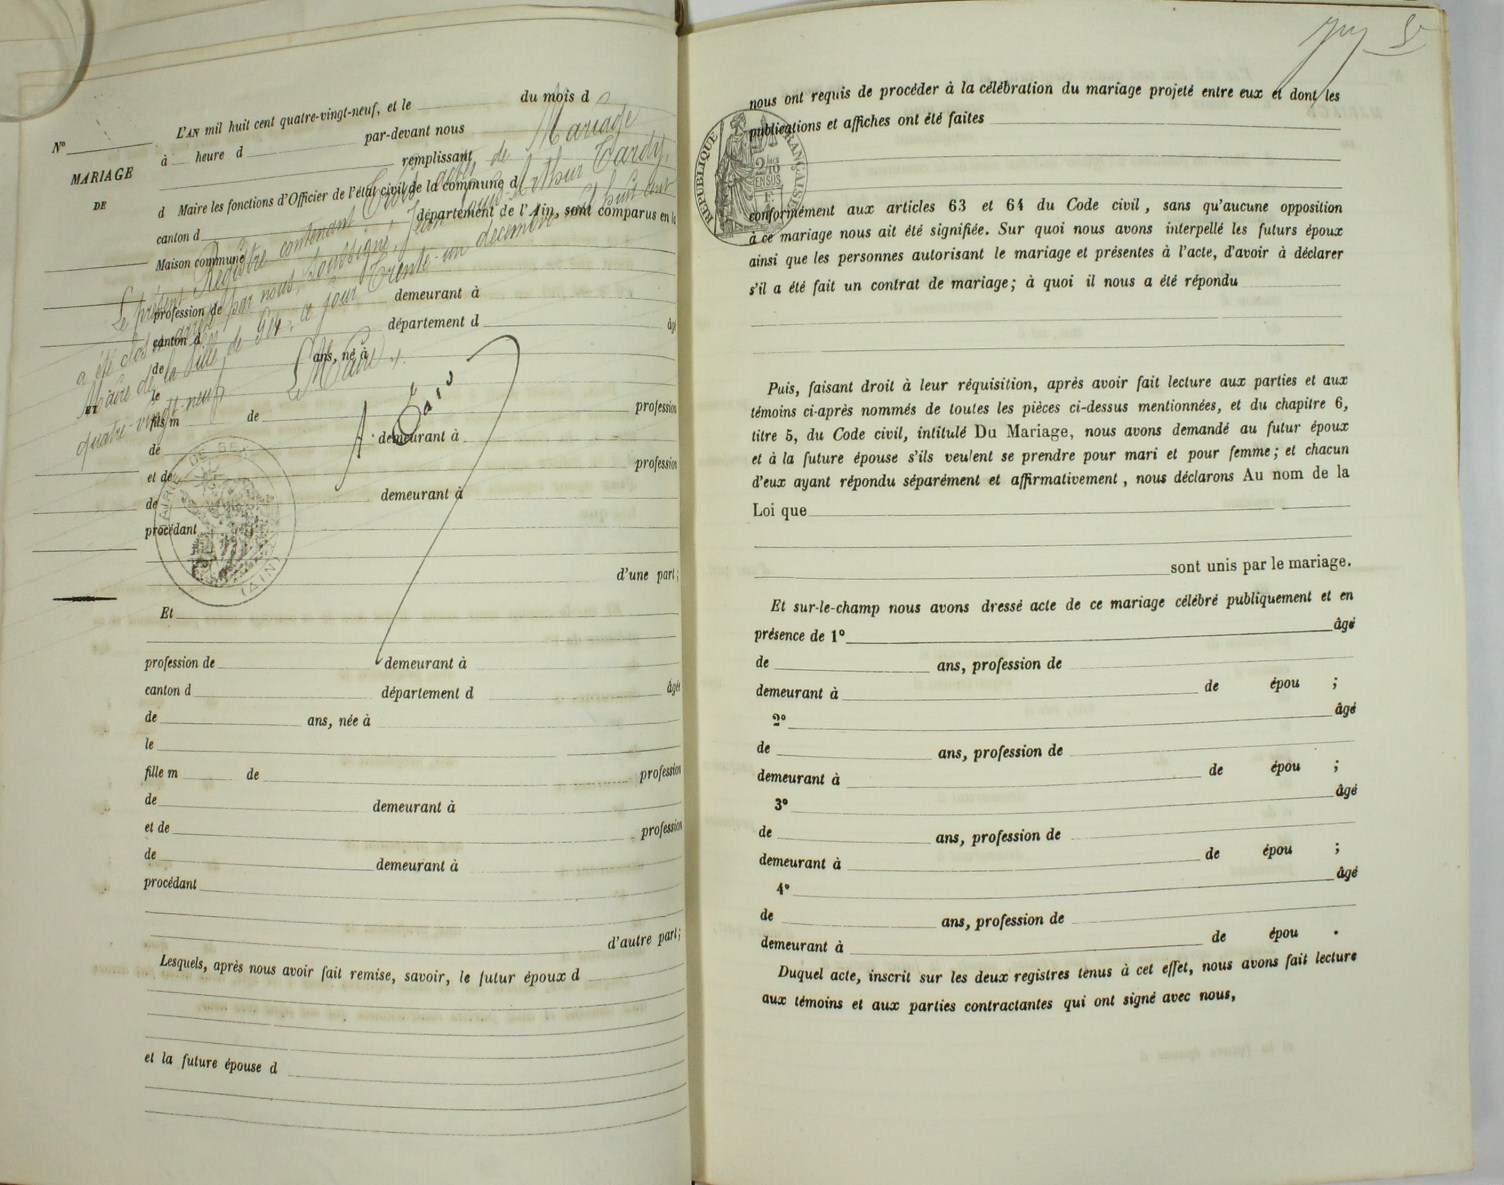 L'AN mil huit cent quatre-vingt-neuf, et le du mois d
N° à heure d par-devant nous
MARIAGE
DE
remplissant
d Maire les fonctions d'Officier de l'état civil de la commune d
canton d département de l'Ain, sont comparus en la
Maison commune
profession de demeurant à
canton d département d âgé
de ans, né à
le
ET
fils m de profession
de demeurant à
et de profession
de demeurant à
procédant
d'une part;
Et
profession de demeurant à
canton d département d âgée
de ans, née à
le
fille m de profession
de demeurant à
et de profession
de demeurant à
procédant
d'autre part;
Lesquels, après nous avoir fait remise, savoir, le futur époux d
et la future épouse d
Le présent Registre contenant Trois actes de Mariage
a été clos et arrêté par nous, soussigné, Jean Louis Arthur Tardy,
Maire de la Ville de Gex, ce jour Trente-un décembre mil huit cent
quatre-vingt-neuf.
Le Maire,
MAIRIE DE
(AIN)
nous ont requis de procéder à la célébration du mariage projeté entre eux et dont les
publications et affiches ont été faites
RÉPUBLIQUE FRANÇAISE
conformément aux articles 63 et 64 du Code civil, sans qu'aucune opposition
à ce mariage nous ait été signifiée. Sur quoi nous avons interpellé les futurs époux
ainsi que les personnes autorisant le mariage et présentes à l'acte, d'avoir à déclarer
s'il a été fait un contrat de mariage; à quoi il nous a été répondu
Puis, faisant droit à leur réquisition, après avoir fait lecture aux parties et aux
témoins ci-après nommés de toutes les pièces ci-dessus mentionnées, et du chapitre 6,
titre 5, du Code civil, intitulé Du Mariage, nous avons demandé au futur époux
et à la future épouse s'ils veulent se prendre pour mari et pour femme; et chacun
d'eux ayant répondu séparément et affirmativement, nous déclarons Au nom de la
Loi que
sont unis par le mariage.
Et sur-le-champ nous avons dressé acte de ce mariage célébré publiquement et en
présence de 1° âgé
de ans, profession de
demeurant à de épou ;
2° âgé
de ans, profession de
demeurant à de épou ;
3° âgé
de ans, profession de
demeurant à de épou ;
4° âgé
de ans, profession de
demeurant à de épou .
Duquel acte, inscrit sur les deux registres tenus à cet effet, nous avons fait lecture
aux témoins et aux parties contractantes qui ont signé avec nous,